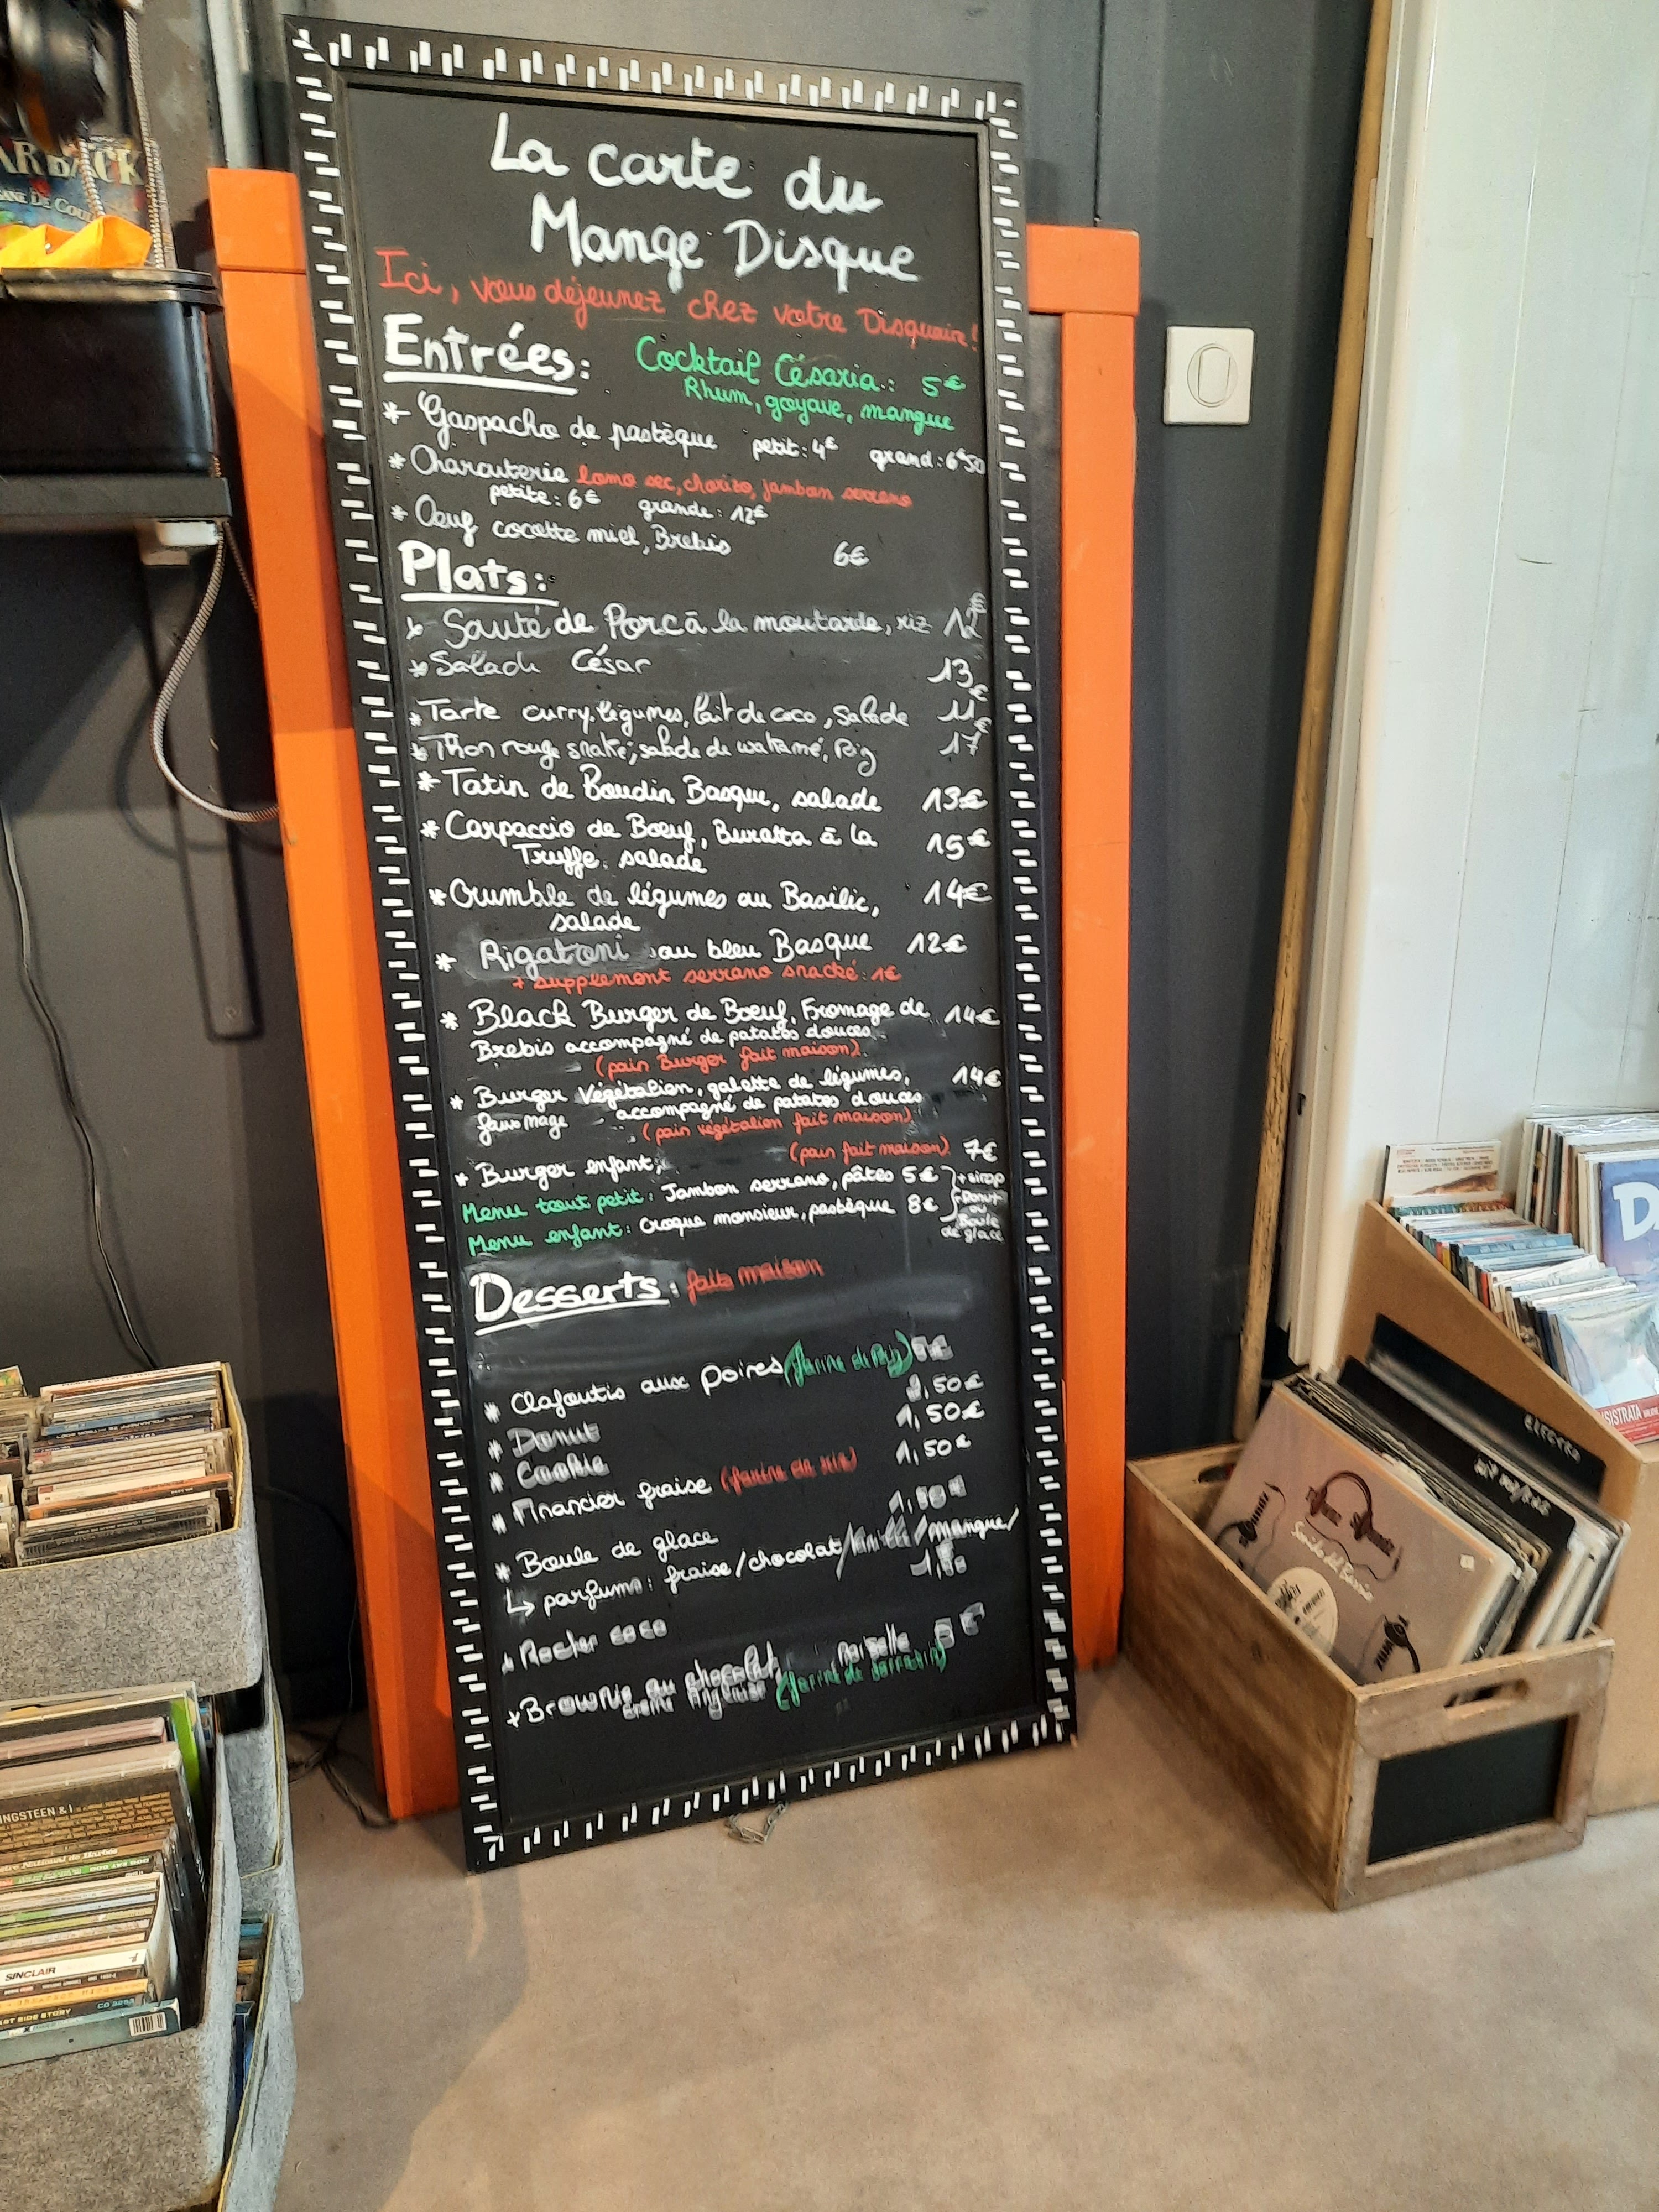 La carte du
Mange Disque
Ici, vous déjeunez chez votre Disquaire!
Entrées:
Cocktail Césaria: 5€
Rhum, goyave, mangue
* Gaspacho de pastèque petit: 4€ grand: 6€50
* Charcuterie lomo sec, chorizo, jambon serrano
petite: 6€ grande: 12€
* Oeuf cocotte miel, Brebis 6€
Plats:
* Sauté de Porc à la moutarde, riz 12€
* Salade César 13€
* Tarte curry, légumes, lait de coco, salade 11€
* Thon rouge snaké, salade de wakamé, Riz 17€
* Tatin de Boudin Basque, salade 13€
* Carpaccio de Boeuf, Buratta à la 15€
Truffe. salade
* Crumble de légumes au Basilic, 14€
salade
* Rigatoni au bleu Basque 12€
+ supplément serrano snacké: 1€
* Black Burger de Boeuf, Fromage de 14€
Brebis accompagné de patates douces
(pain Burger fait maison)
* Burger Végétalien, galette de légumes, 14€
faux mage accompagné de patates douces
(pain végétalien fait maison)
* Burger enfant, (pain fait maison) 7€
Menu tout petit: Jambon serrano, pâtes 5€
Menu enfant: Croque monsieur, pastèque 8€
+ sirop
+ Donut
ou
Boule
de glace
Desserts: faits maison
* Clafoutis aux poires (farine de Riz)
* Donut
,50€
* Cookie 1,50€
* Financier fraise (farine de riz) 1,50€
* Boule de glace
↳ parfums: fraise/chocolat/vanille/mangue/
* Rocher coco
* Brownie au chocolat, Noisette
crème Anglaise (farine de sarrasin)
NGSTEEN & I
SINCLAIR
ST SIDE STORY
SISTRATA
ELECTRO